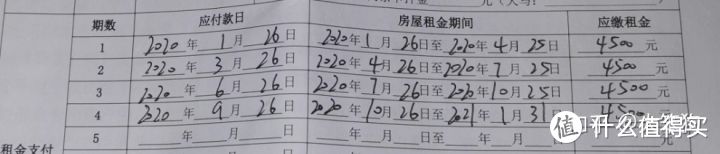 元
期数 应付款日 房屋租金期间 应缴租金
1 2020年1月26日 2020年1月26日至2020年4月25日 4500元
2 2020年3月26日 2020年4月26日至2020年7月25日 4500元
3 2020年6月26日 2020年7月26日至2020年10月25日 4500元
4 2020年9月26日 2020年10月26日至2021年1月31日 4500
5 年 月 日 年 月 日至 年 月 日 元
租金支付
值 什么值得买